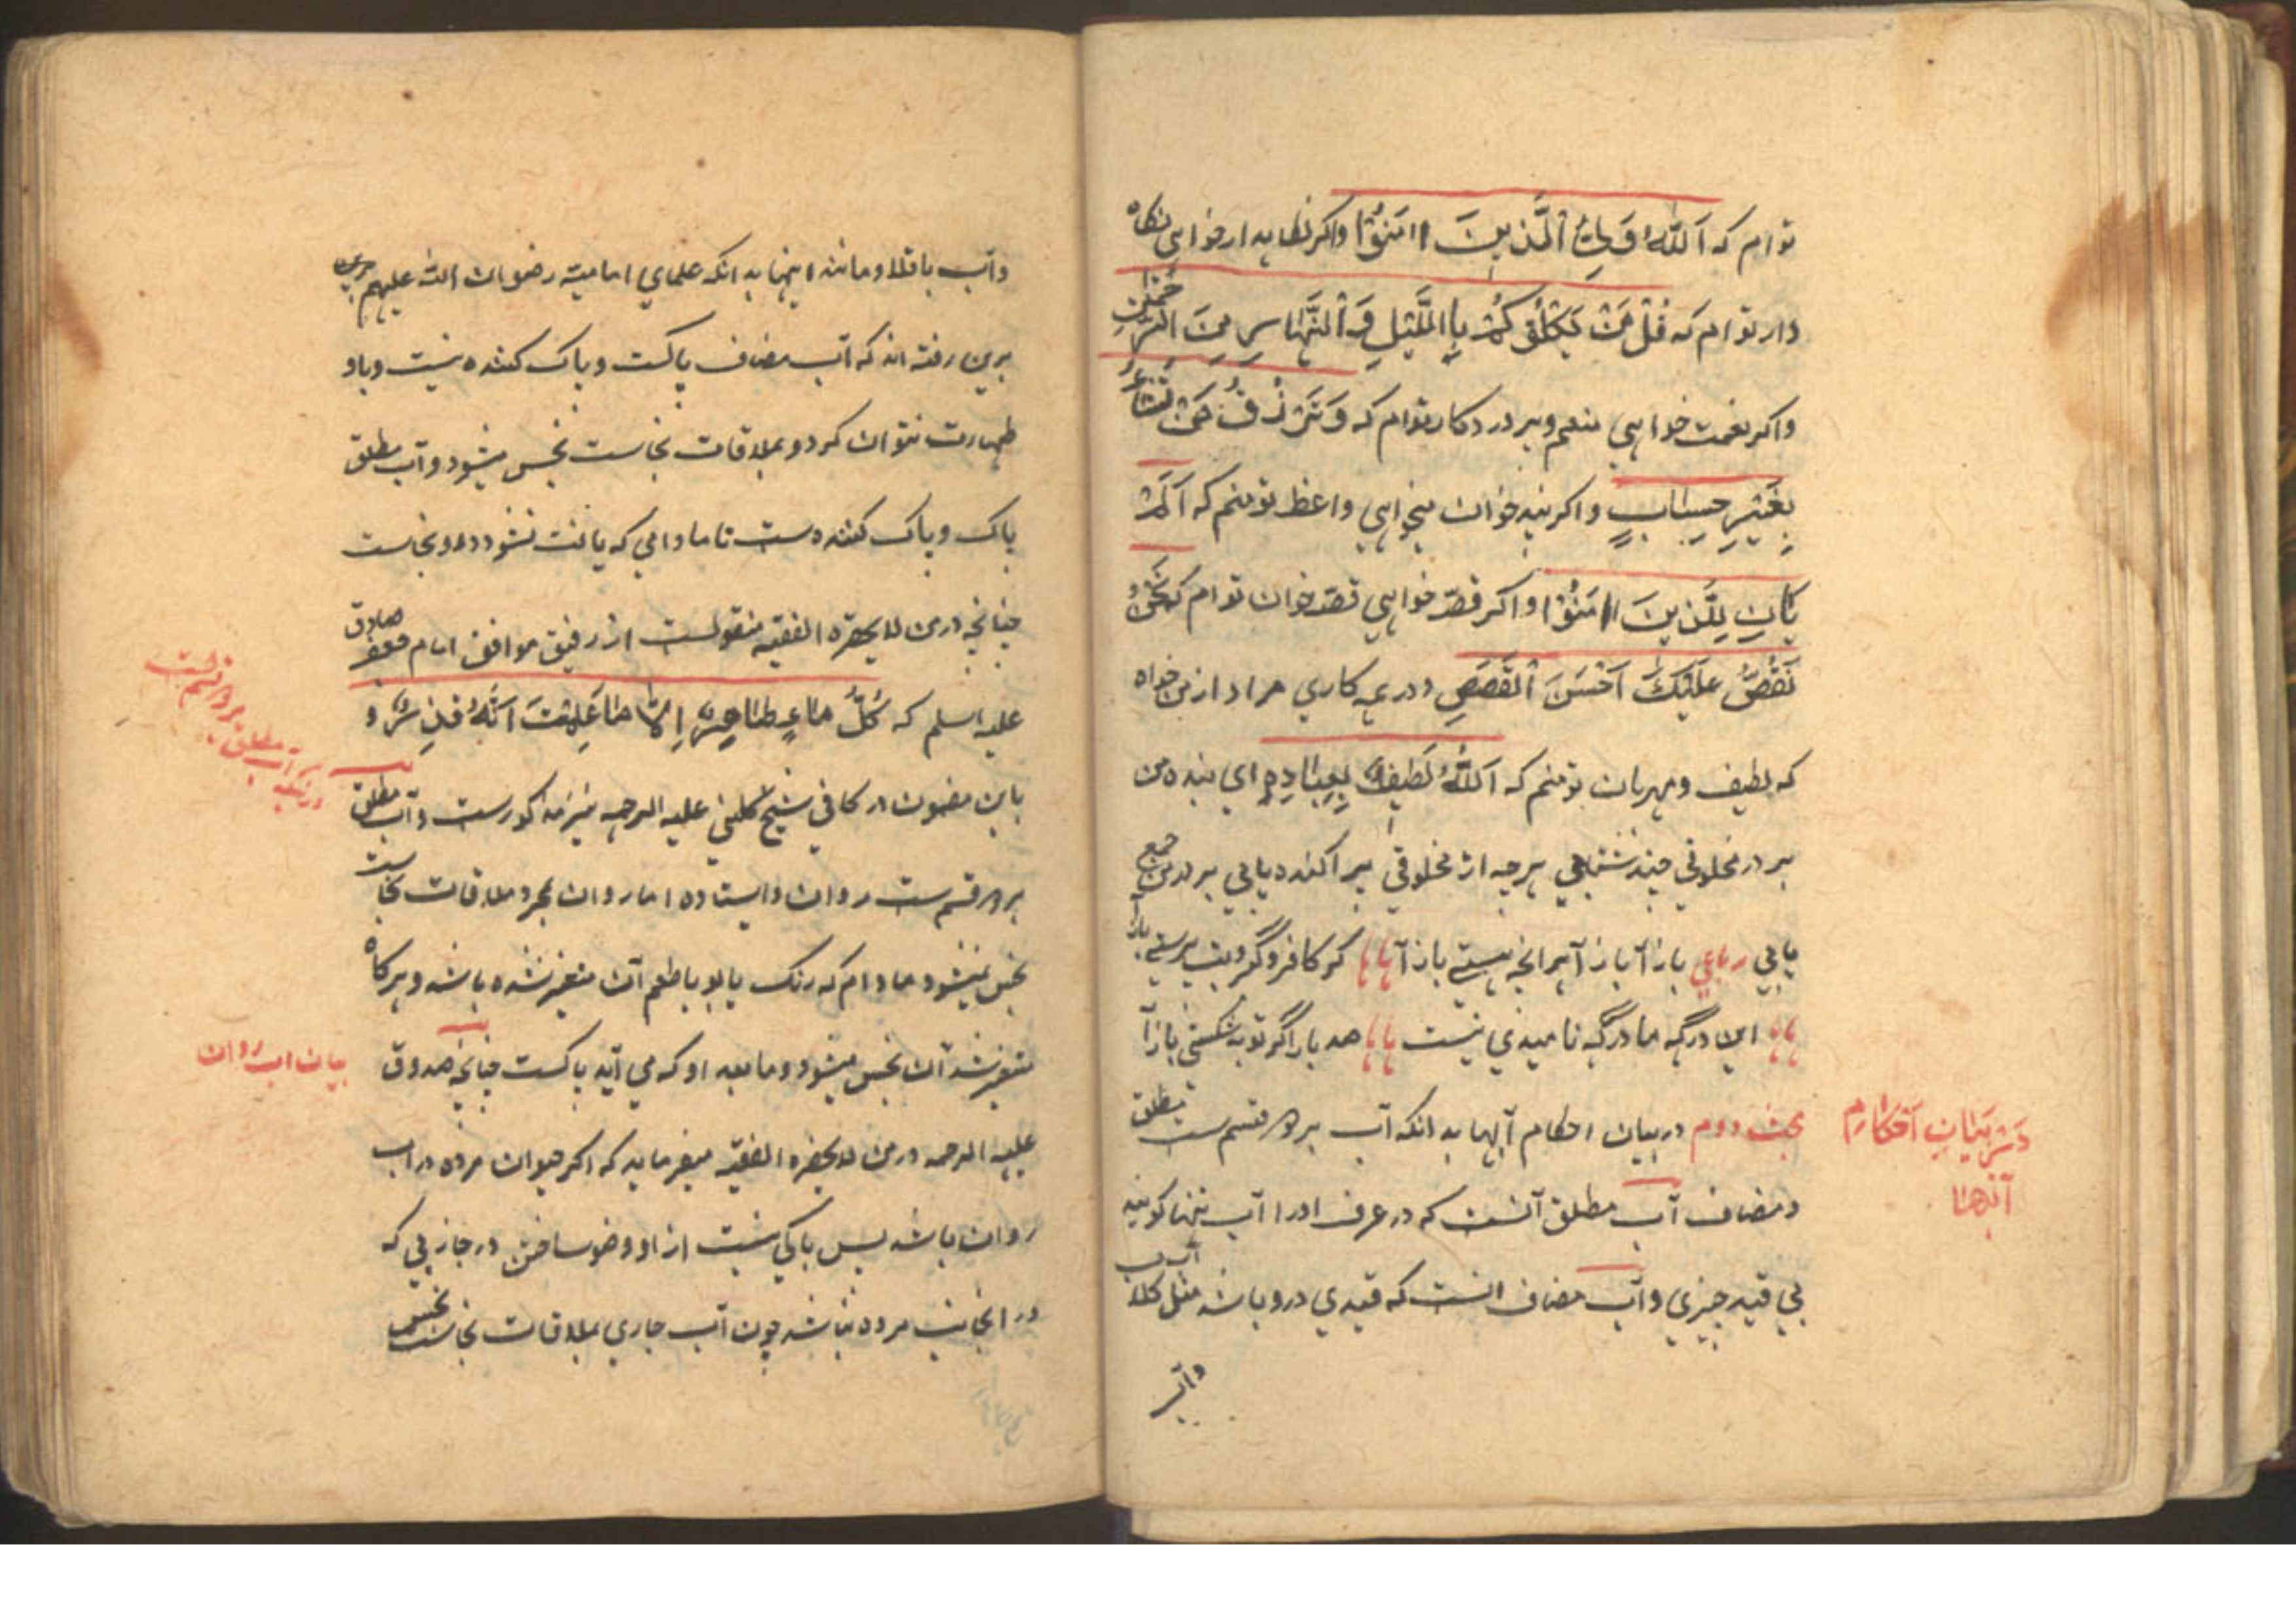 توام که اَللّٰهُ وَلِيُّ الَّذِينَ اٰمَنُوْا واکر نکاهدار خواهی نکاه
دار توام که قُلْ مَنْ يَكْلَؤُكُمْ بِاللَّيْلِ وَالنَّهَارِ مِنَ الرَّحْمٰنِ
واکر نعمت خواهی منعم وپروردکار توام که وَتَرْزُقُ مَنْ تَشَاءُ
بِغَيْرِ حِسَابٍ واکر پند خوان میخواهی واعظ تو منم که اَلَمْ
يَأْنِ لِلَّذِينَ اٰمَنُوْا واکر قصّه خواهی قصّه خوان توام که نَحْنُ
نَقُصُّ عَلَيْكَ اَحْسَنَ الْقَصَصِ ودر همه کاری مراد از من خواه
که لطیف ومهربان تو منم که اَللّٰهُ لَطِيفٌ بِعِبَادِهِ ای بنده من
بر در مخلوقی چند شتابی هرچه از مخلوقی پراکنده یابی بر در من جمع
یابی رباعی بازآ بازآ هرانچه هستی بازآ ۱۱ گر کافر وگبر وبت پرستی بازآ
۱۱ این درگه ما درگه نامیدی نیست ۱۱ صد بار اگر توبه شکستی بازآ
بحث دوم در بیان احکام آبها بدانکه آب بر دو قسم ست مطلق
دَرْ بَيَانِ اَحْكَام
آبها
ومضاف آب مطلق آنست که در عرف او را آب تنها کویند
بی قید چیزی وآب مضاف انست که قیدی درو باشد مثل کلاب
وآب
وآب باقلا ومانند اینها بدانکه علمای امامیه رضوان الله علیهم
برین رفته اند که آب مضاف پاکست وپاک کننده نیست وباو
طهارت نتوان کرد وبملاقات نجاست نجس میشود وآب مطلق
پاک وپاک کننده ست تا مادامی که یافت نشود درو نجاست
چنانچه در من لا یحضره الفقیه منقولست از رفیق موافق امام جعفر صادق
علیه اسلم که كُلُّ مَاءٍ طَاهِرٌ اِلَّا مَا عَلِمْتَ اَنَّهُ قَذِرٌ و
در آنکه آب مطلق بر دو قسم است
باین مضمون در کافی شیخ کلینی علیه الرحمه نیز مذکورست وآب مطلق
بر دو قسم ست روان وایستاده اما روان بمجرد ملاقات نجاست
نجس نمیشود مادام که رنک یا بو یا طعم آن متغیر نشده باشد وهرکاه
متغیر شد آن نجس میشود وما بعد او که می آید پاکست چنانچه صدوق
بیان اب روان
علیه الرحمه در من لا یحضره الفقیه میفرماید که اکر حیوان مرده در اب
روان باشد پس باکی نیست از او وضو ساختن در جانبی که
در انجانب مرده نباشد چون آب جاری بملاقات نجاست نجس